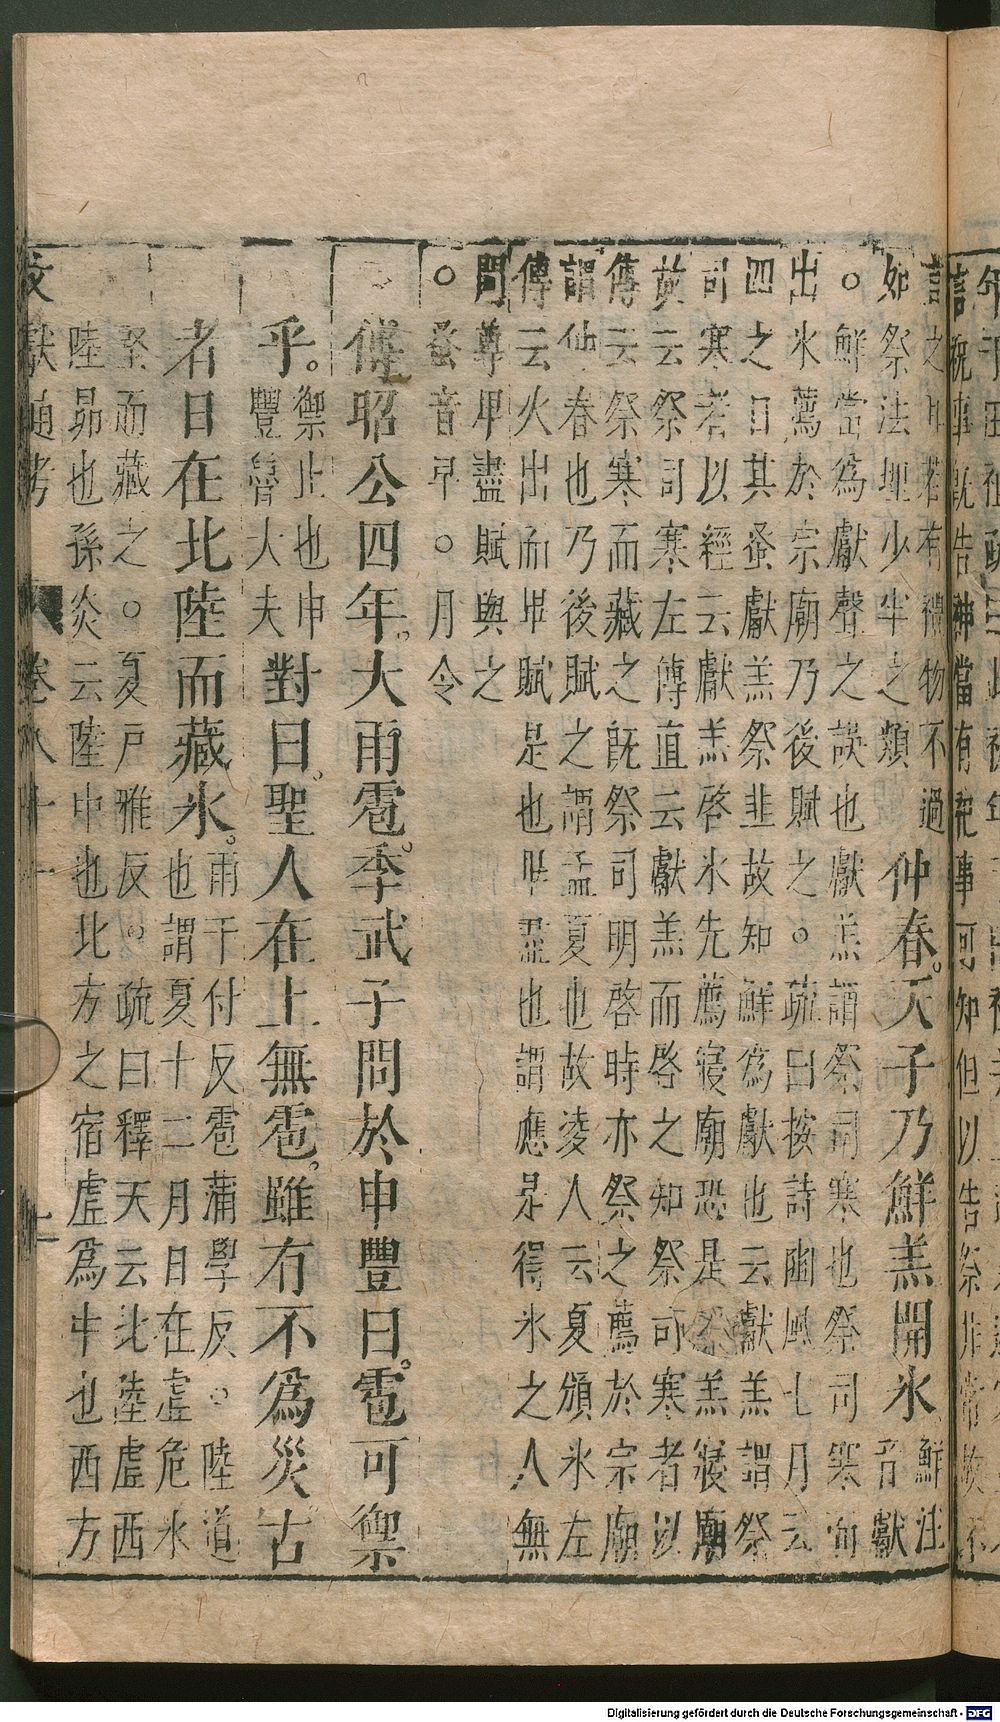 言祝事既告神當有祀事可知但以告祭非常故不
言之耳若有禮物不過
如祭法埋少牢之類
仲春。天子乃鮮羔開氷
鮮注
音獻
○鮮當爲獻聲之誤也獻羔謂祭司寒也祭司寒而
出氷薦於宗廟乃後賦之○疏曰按詩豳風七月云
四之日其蚤獻羔祭韭故知鮮爲獻也云獻羔謂祭
司寒者以經云獻羔啓氷先薦寢廟恐是祭羔寢廟
云祭司寒左傳直云獻羔而啓之知祭司寒者以
傳云祭寒而藏之既祭司明啓時亦祭之薦於宗廟
謂仲春也乃後賦之謂孟夏也故凌人云夏頒氷左
傳云火出而畢賦是也畢盡也謂應是得氷之人無
問尊卑盡賦與之
○蚤音早○月令
傳昭公四年。大雨雹。季武子問於申豐曰。雹可禦
乎。
禦止也申
豐魯大夫
對曰。聖人在上無雹。雖有不爲災。古
者日在北陸而藏氷。
雨于付反雹蒲學反○陸道
也謂夏十二月日在虛危氷
堅而藏之○夏戶雅反○疏曰釋天云北陸虛西
陸昴也孫炎云陸中也北方之宿虛爲中也西方
文獻通考 卷八十一
Digitalisierung gefördert durch die Deutsche Forschungsgemeinschaft - DFG